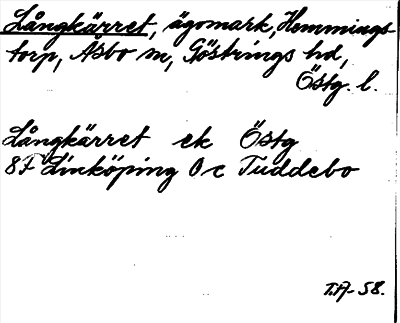 Långkärret, ägomark, Hemmings-
torp, Asbo sn, Göstrings hd,
Östg. l.
Långkärret ek Östg
8F Linköping 0c Tuddebo
T.A-58.